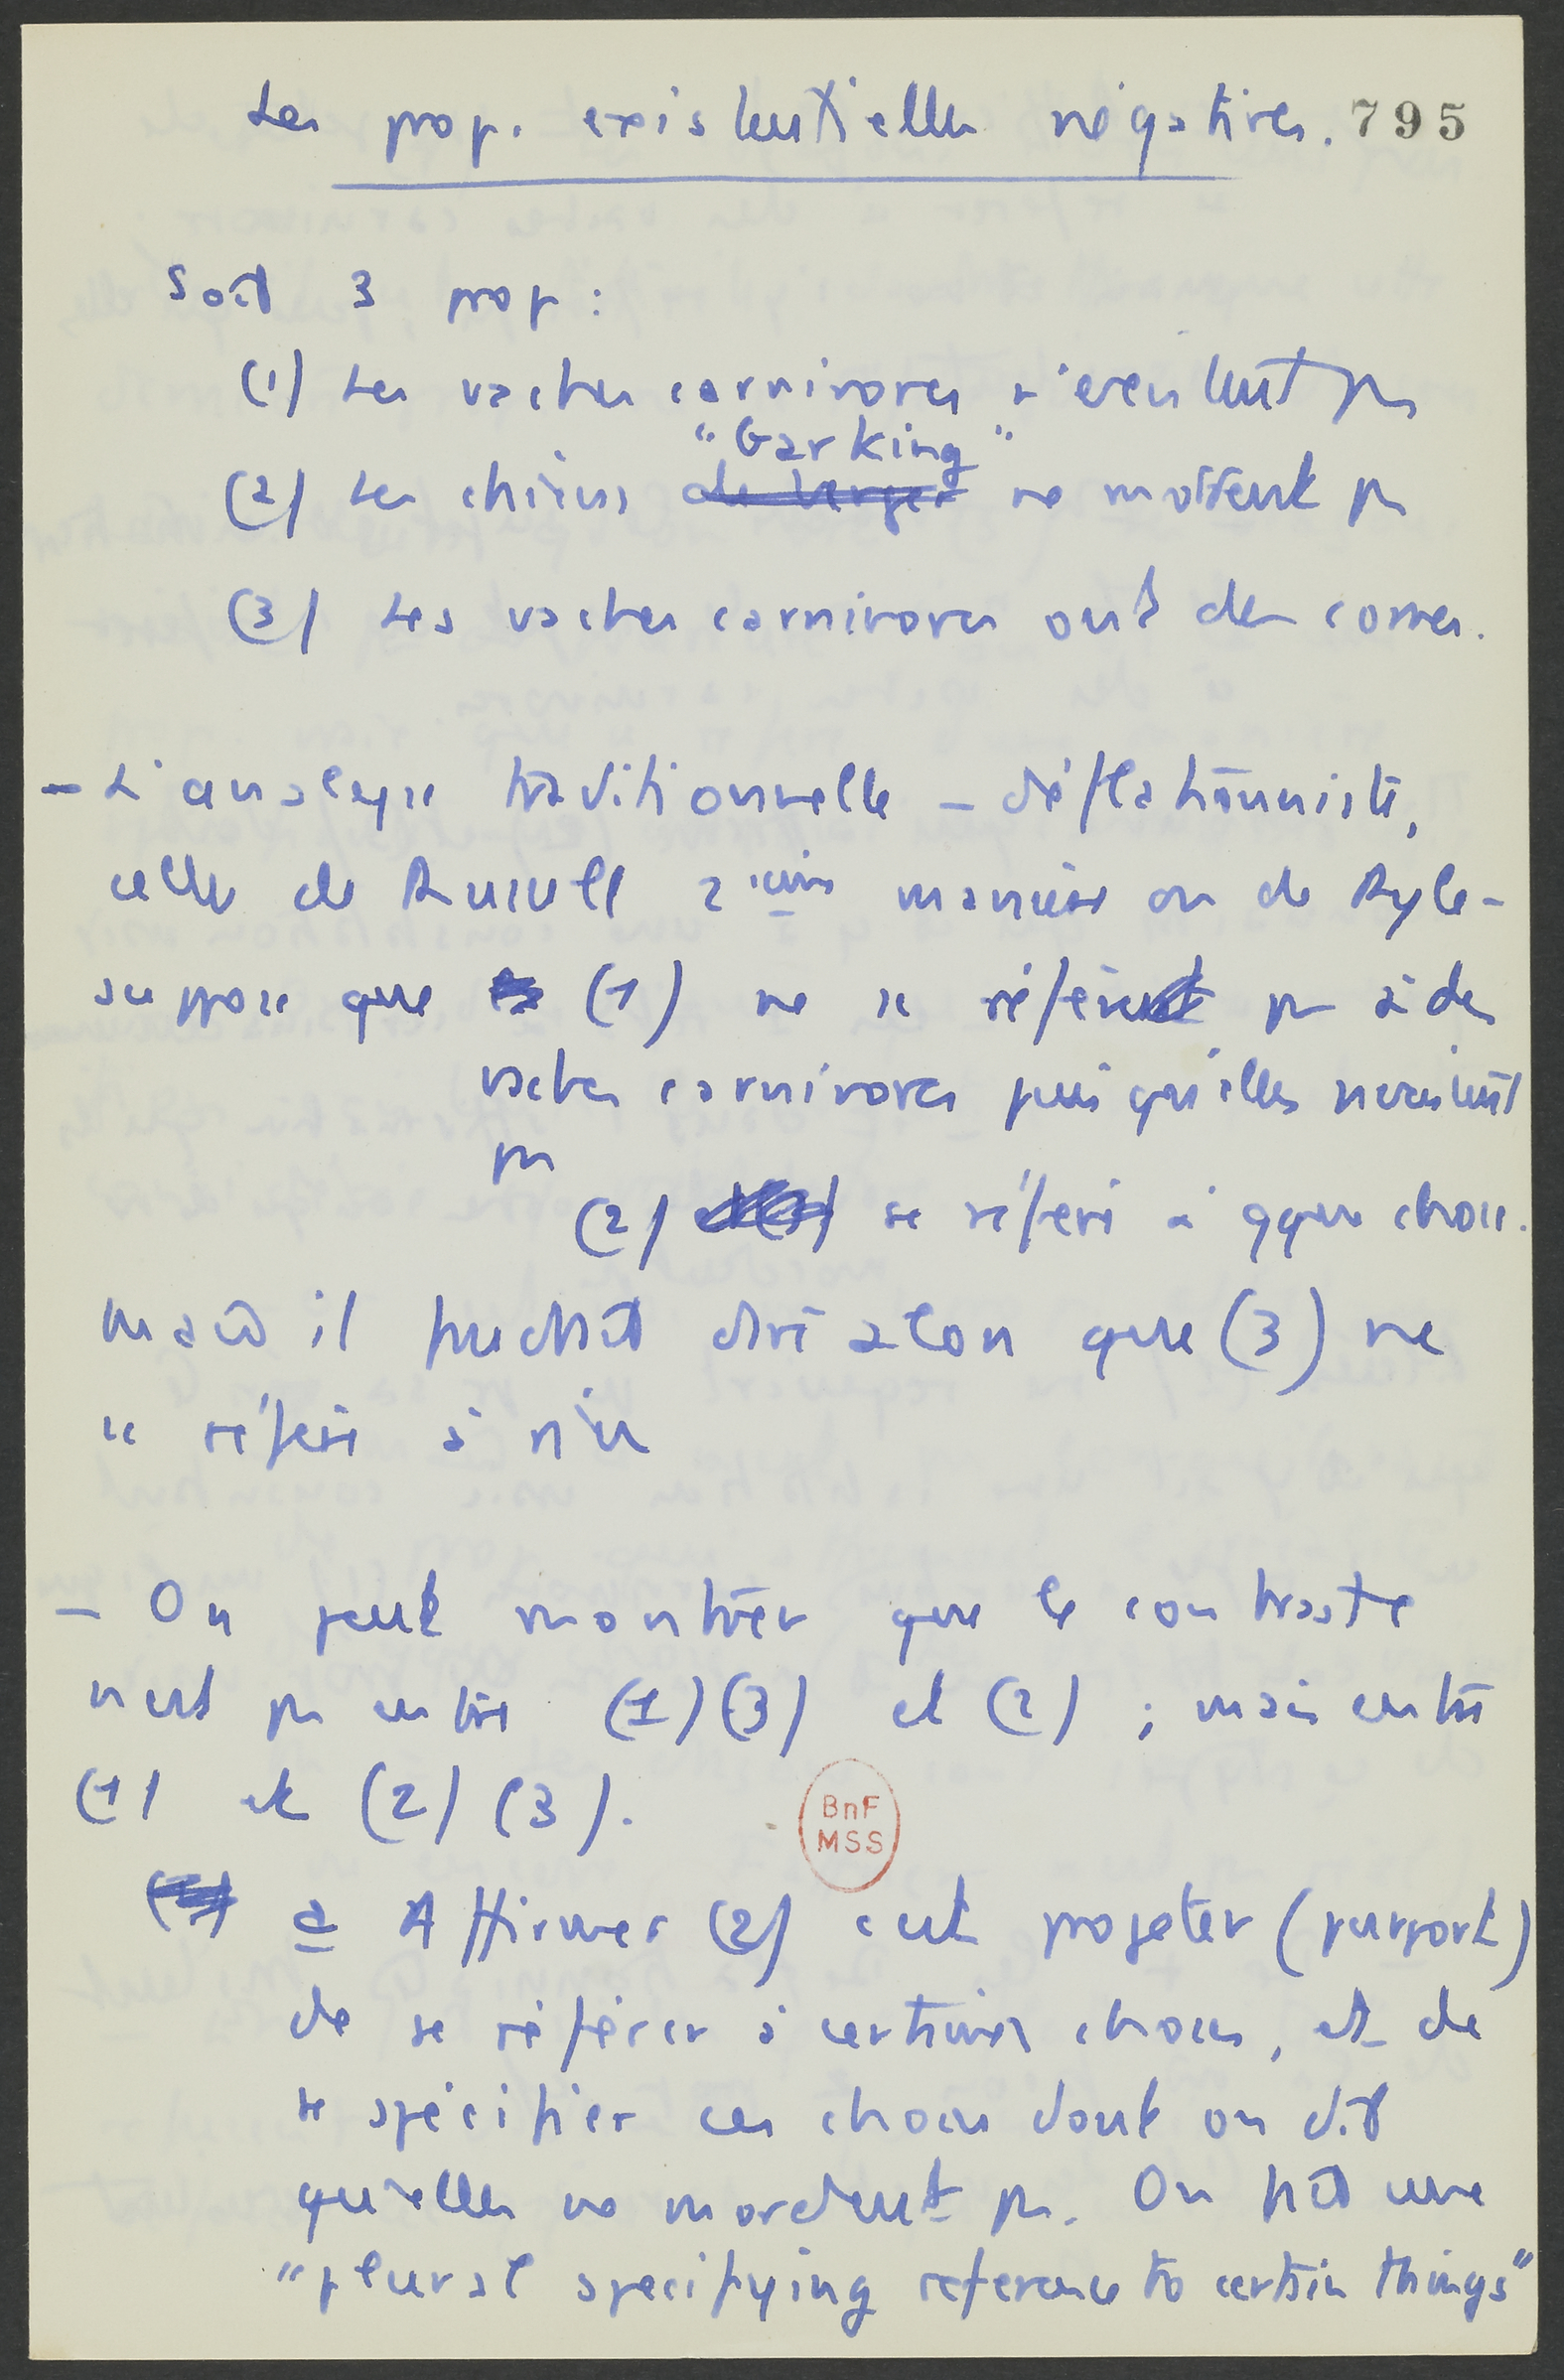 Les prop. existentielles négatives. 795
Soit 3 prop :
(1) Les vaches carnivores n'existent pas
"Barking"
(2) Les chiens de berger ne mordent pas
(3) Les vaches carnivores ont des cornes.
- L'analyse traditionnelle - déflationniste,
celle de Russell 2ième manière ou de Ryle -
suppose que (1) ne se réfèrent pas à des
vaches carnivores puisqu'elles n'existent
pas
(2) se réfère à qque chose.
Mais il faudrait dire alors que (3) ne
se réfère à rien
- On peut montrer que le contraste
n'est pas entre (1) (3) et (2) ; mais entre
(1) et (2) (3).
BnF
MSS
a Affirmer (2) c'est projeter (purport)
de se référer à certaines choses, et de
se spécifier ces choses dont on dit
qu'elles ne mordent pas. On fait une
"plural specifying reference to certain things"